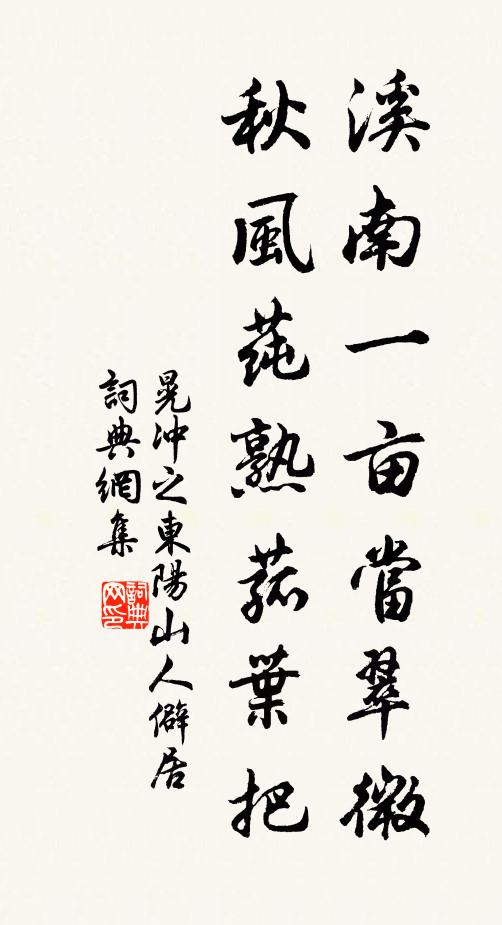 溪南一亩當翠微
秋風蒓熟菰葉把
晁沖之東陽山人僻居
詞典網集
詞典网印